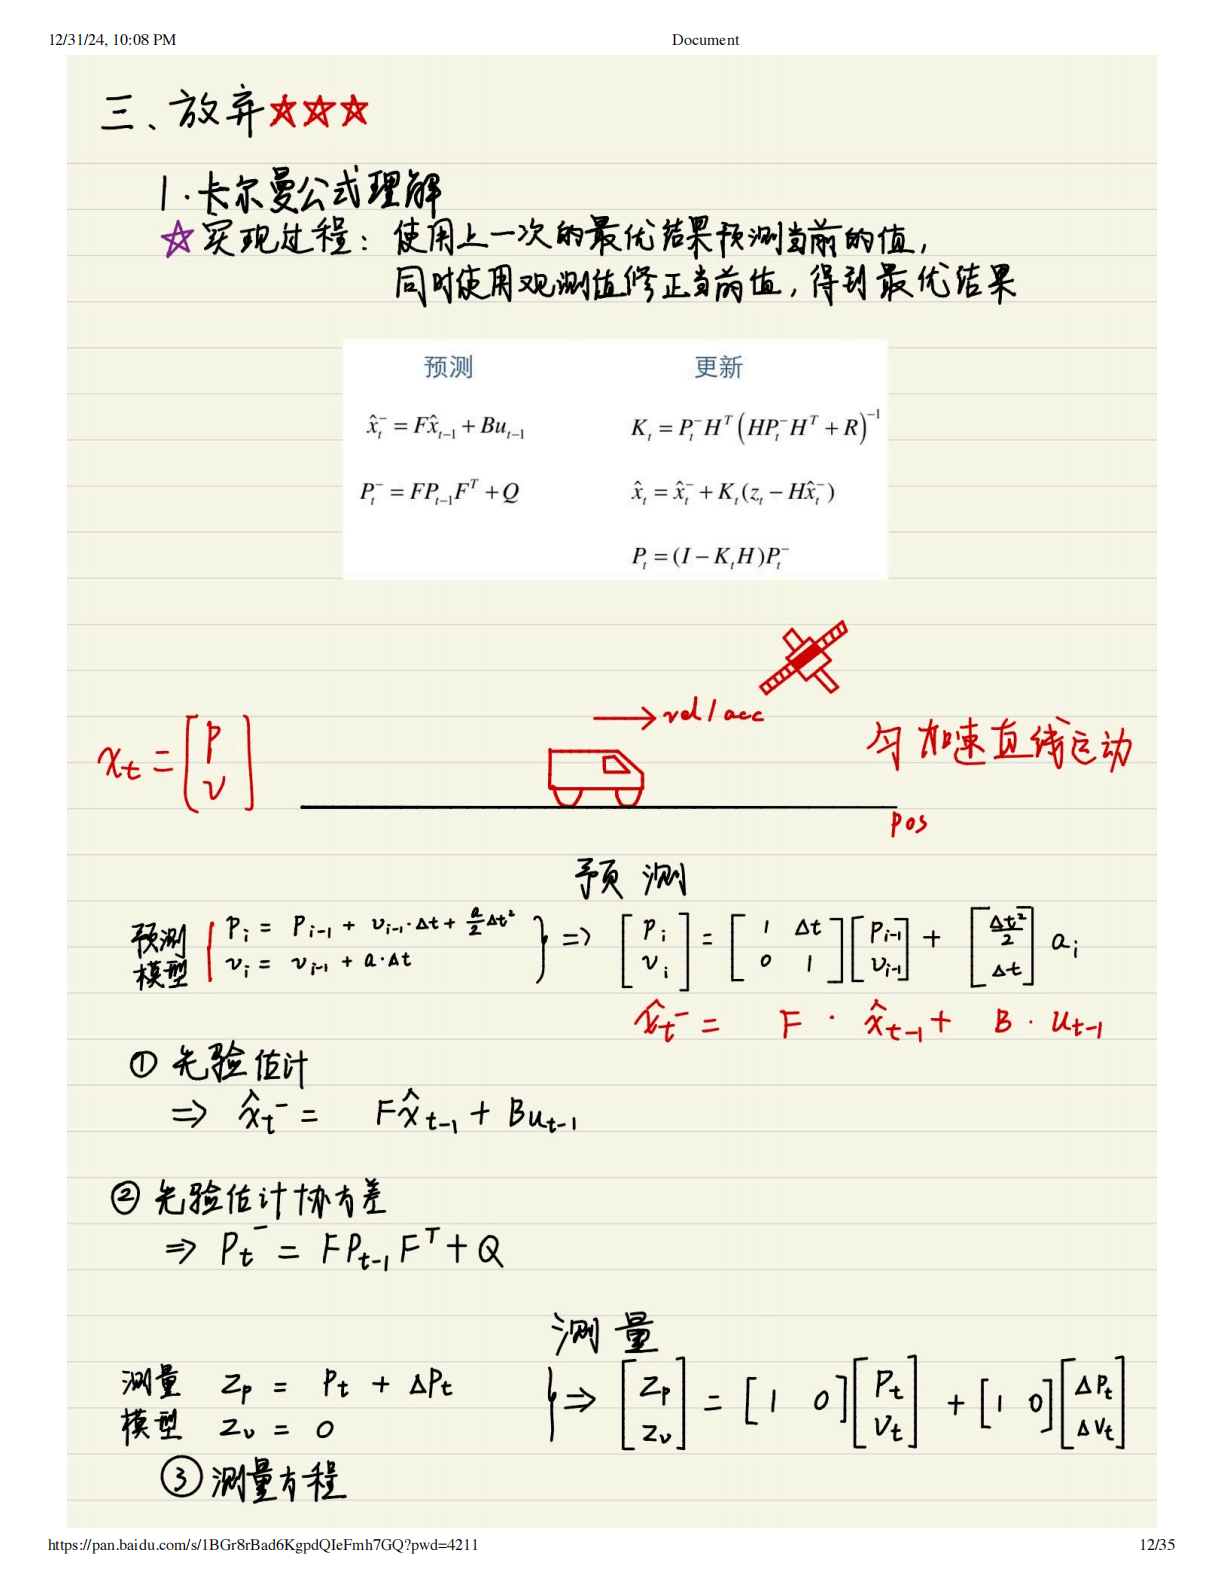 12/31/24, 10:08 PM Document
三、放弃☆☆☆
1.卡尔曼公式理解
☆实现过程: 使用上一次的最优结果预测当前的值,
同时使用观测值修正当前值,得到最优结果
预测 更新
x̂ₜ⁻ = Fx̂ₜ₋₁ + Buₜ₋₁ Kₜ = Pₜ⁻Hᵀ(HPₜ⁻Hᵀ + R)⁻¹
Pₜ⁻ = FPₜ₋₁Fᵀ + Q x̂ₜ = x̂ₜ⁻ + Kₜ(zₜ − Hx̂ₜ⁻)
Pₜ = (I − KₜH)Pₜ⁻
vel/acc
xₜ = [P v] 匀加速直线运动
pos
预测
预测模型 { Pᵢ = Pᵢ₋₁ + vᵢ₋₁·Δt + a/2 Δt² } => [Pᵢ vᵢ] = [1 Δt 0 1][Pᵢ₋₁ vᵢ₋₁] + [Δt²/2 Δt] aᵢ
vᵢ = vᵢ₋₁ + a·Δt
x̂ₜ⁻ = F · x̂ₜ₋₁ + B · uₜ₋₁
① 先验估计
=> x̂ₜ⁻ = Fx̂ₜ₋₁ + Buₜ₋₁
② 先验估计协方差
=> Pₜ⁻ = FPₜ₋₁Fᵀ + Q
测量
测量模型 Zp = Pₜ + ΔPₜ } => [Zp Zv] = [1 0][Pₜ Vₜ] + [1 0][ΔPₜ ΔVₜ]
Zv = 0
③ 测量方程
https://pan.baidu.com/s/1BGr8rBad6KgpdQIeFmh7GQ?pwd=4211 12/35